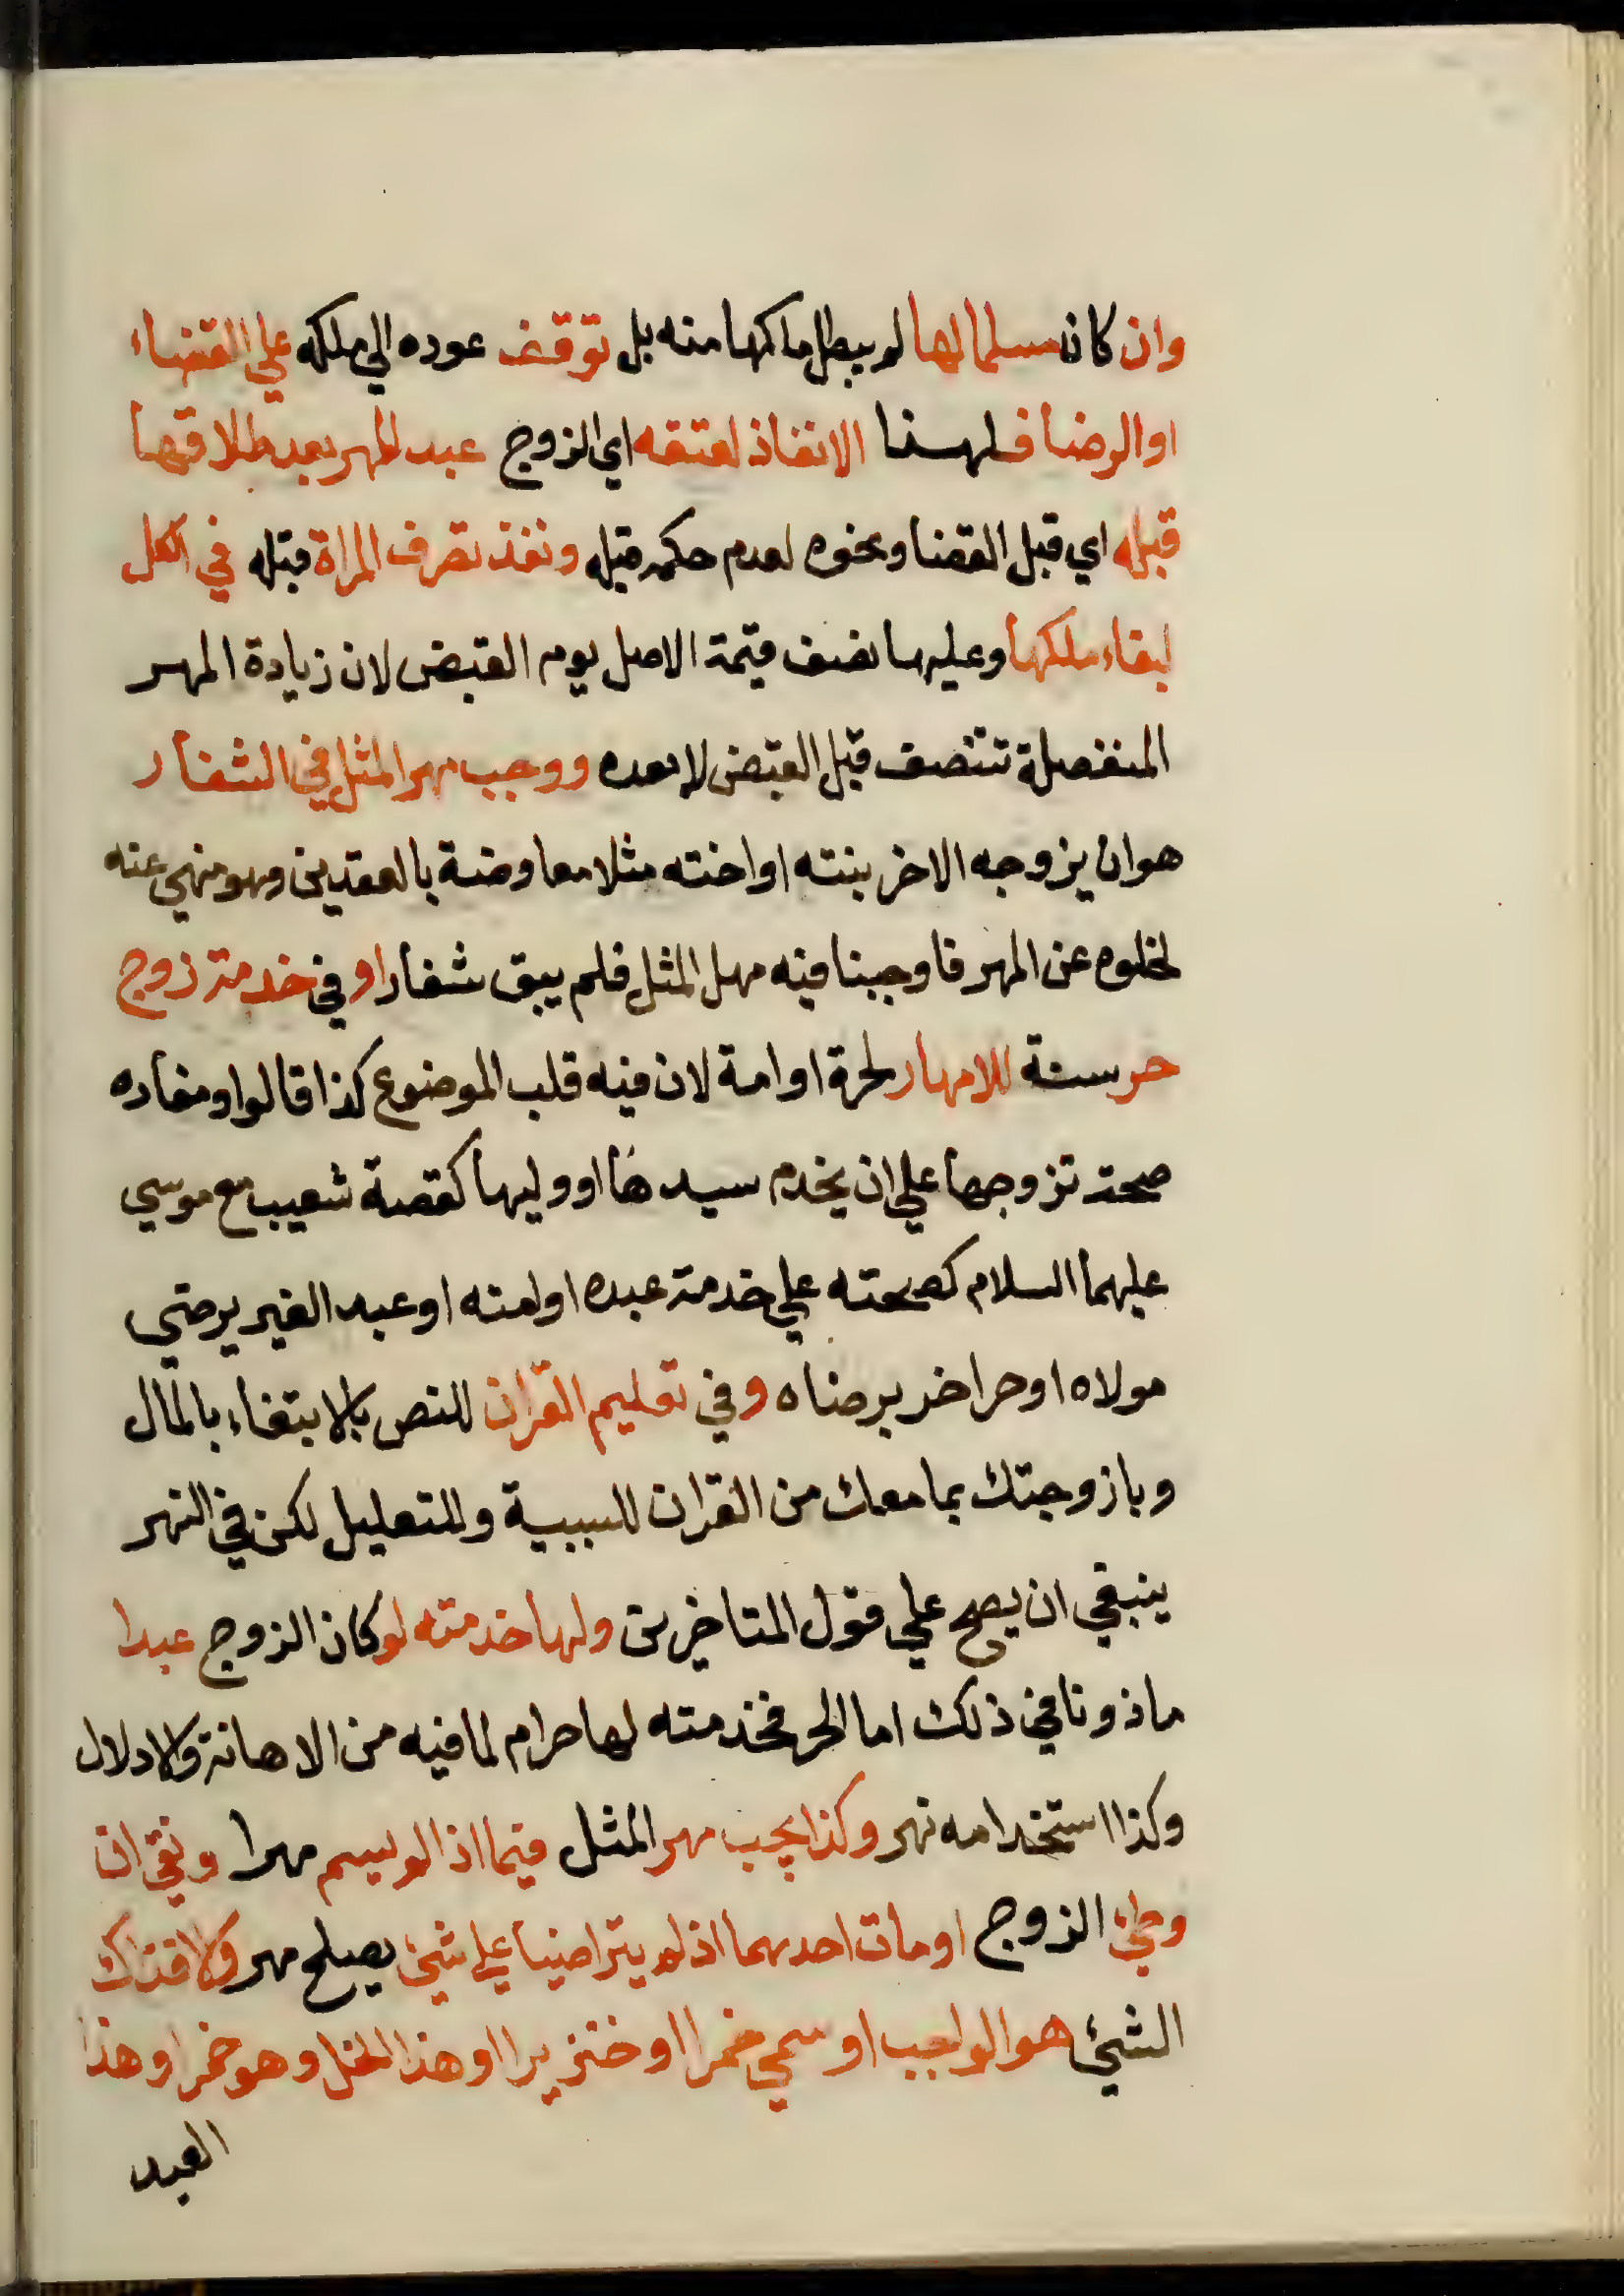 وان كان مسلما لها لم يبطل ملكها منه بل توقف عوده الي ملكه علي القضاء
او الرضا فلهذا الانفاذ لعتقه اي الزوج عبد المهر بعد طلاقها
قبله اي قبل القضا ونحوه لعدم حكمه قبله ونفذ تصرف المراة قبله في الكل
لبقاء ملكها وعليها نصف قيمة الاصل يوم القبض لان زيادة المهر
المنفصلة تتنصف قبل القبض لا بعده ووجب مهر المثل في الشغار
هو ان يزوجه الاخر بنته او اخته مثلا معاوضة بالعقدين وهو منهي عنه
لخلوه عن المهر فاوجبنا فيه مهر المثل فلم يبق شغارا وفي خدمة زوج
حر سنة للامهار لحرة او امة لان فيه قلب الموضوع كذا قالوا ومفاده
صحة تزوجها علي ان يخدم سيدها او وليها كقصة شعيب مع موسي
عليهما السلام كصحته علي خدمة عبده او امته او عبد الغير يرضي
مولاه او حر اخر برضاه وفي تعليم القران للنص بالابتغاء بالمال
وبا زوجتك بما معك من القران للسببية وللتعليل لكن في النهر
ينبغي ان يصح علي قول المتاخرين ولها خدمته لو كان الزوج عبدا
ماذونا في ذلك اما الحر فخدمته لها حرام لما فيه من الاهانة والادلال
وكذا استخدامه نهر وكذا يجب مهر المثل فيما اذا لم يسم مهرا ونفي ان
وطئ الزوج او مات احدهما اذ لم يتراضيا علي شئ يصلح مهر والا فذاك
الشئ هو الواجب او سمي خمرا او خنزيرا او هذا الخل وهو خمر او هذا
العبد